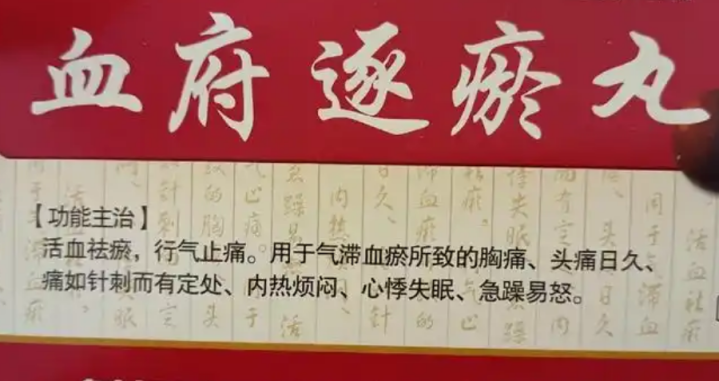 血府逐瘀丸
【功能主治】
活血祛瘀，行气止痛。用于气滞血瘀所致的胸痛、头痛日久、
痛如针刺而有定处、内热烦闷、心悸失眠、急躁易怒。